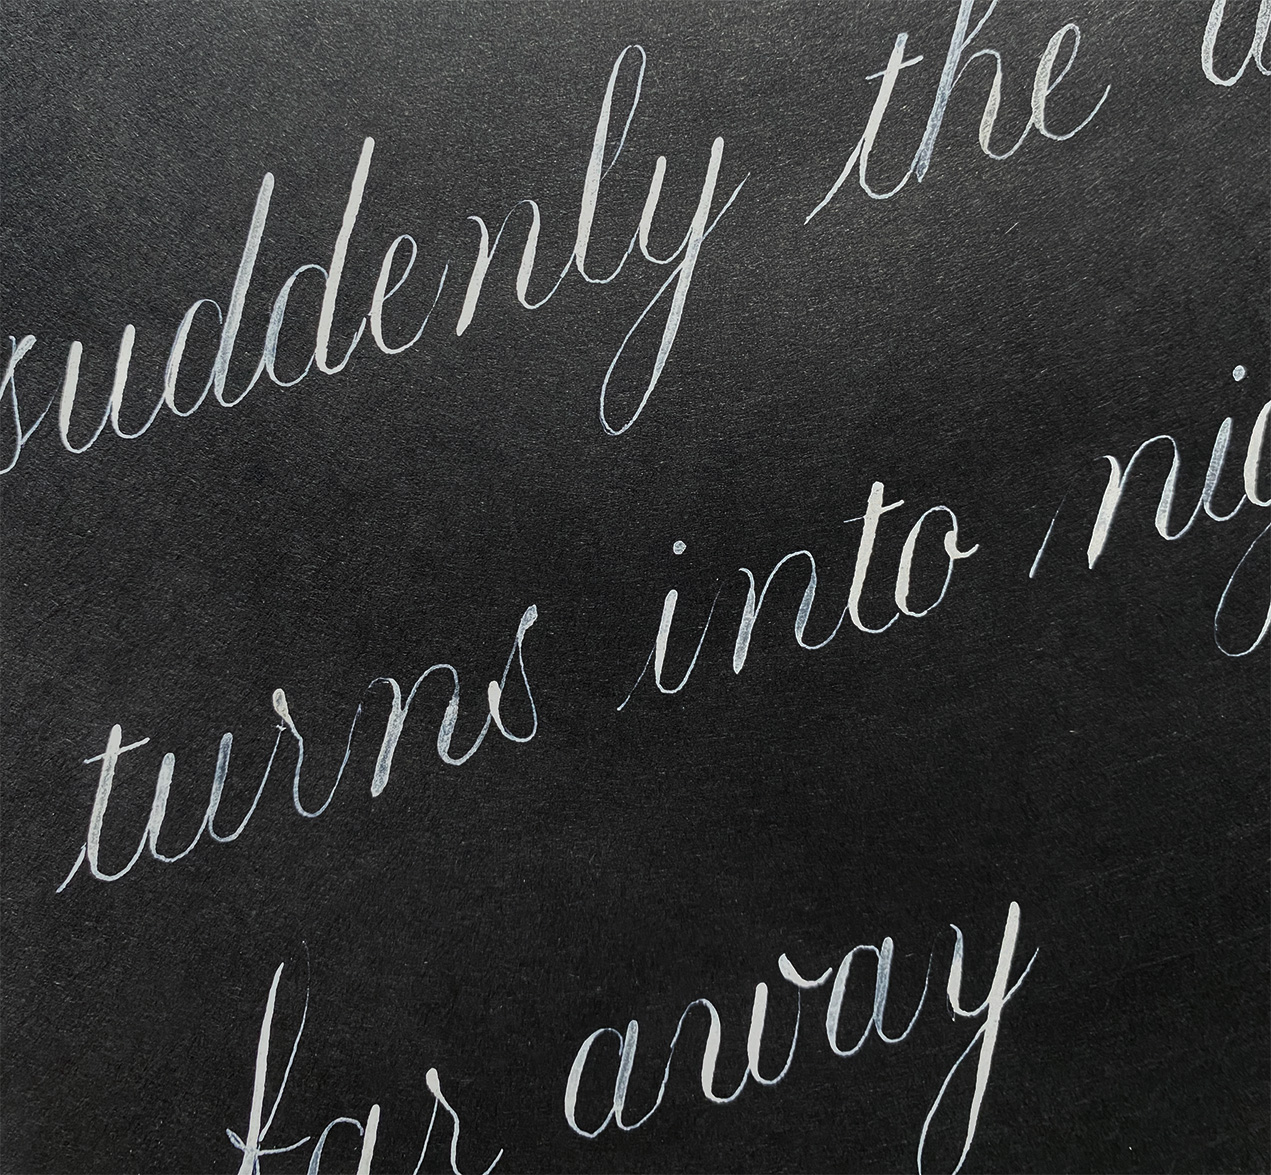 suddenly the
turns into
far away